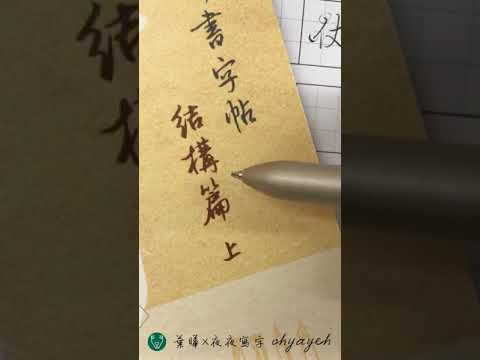 書字帖
結構篇
上
葉曄×夜夜寫字 chyayeh